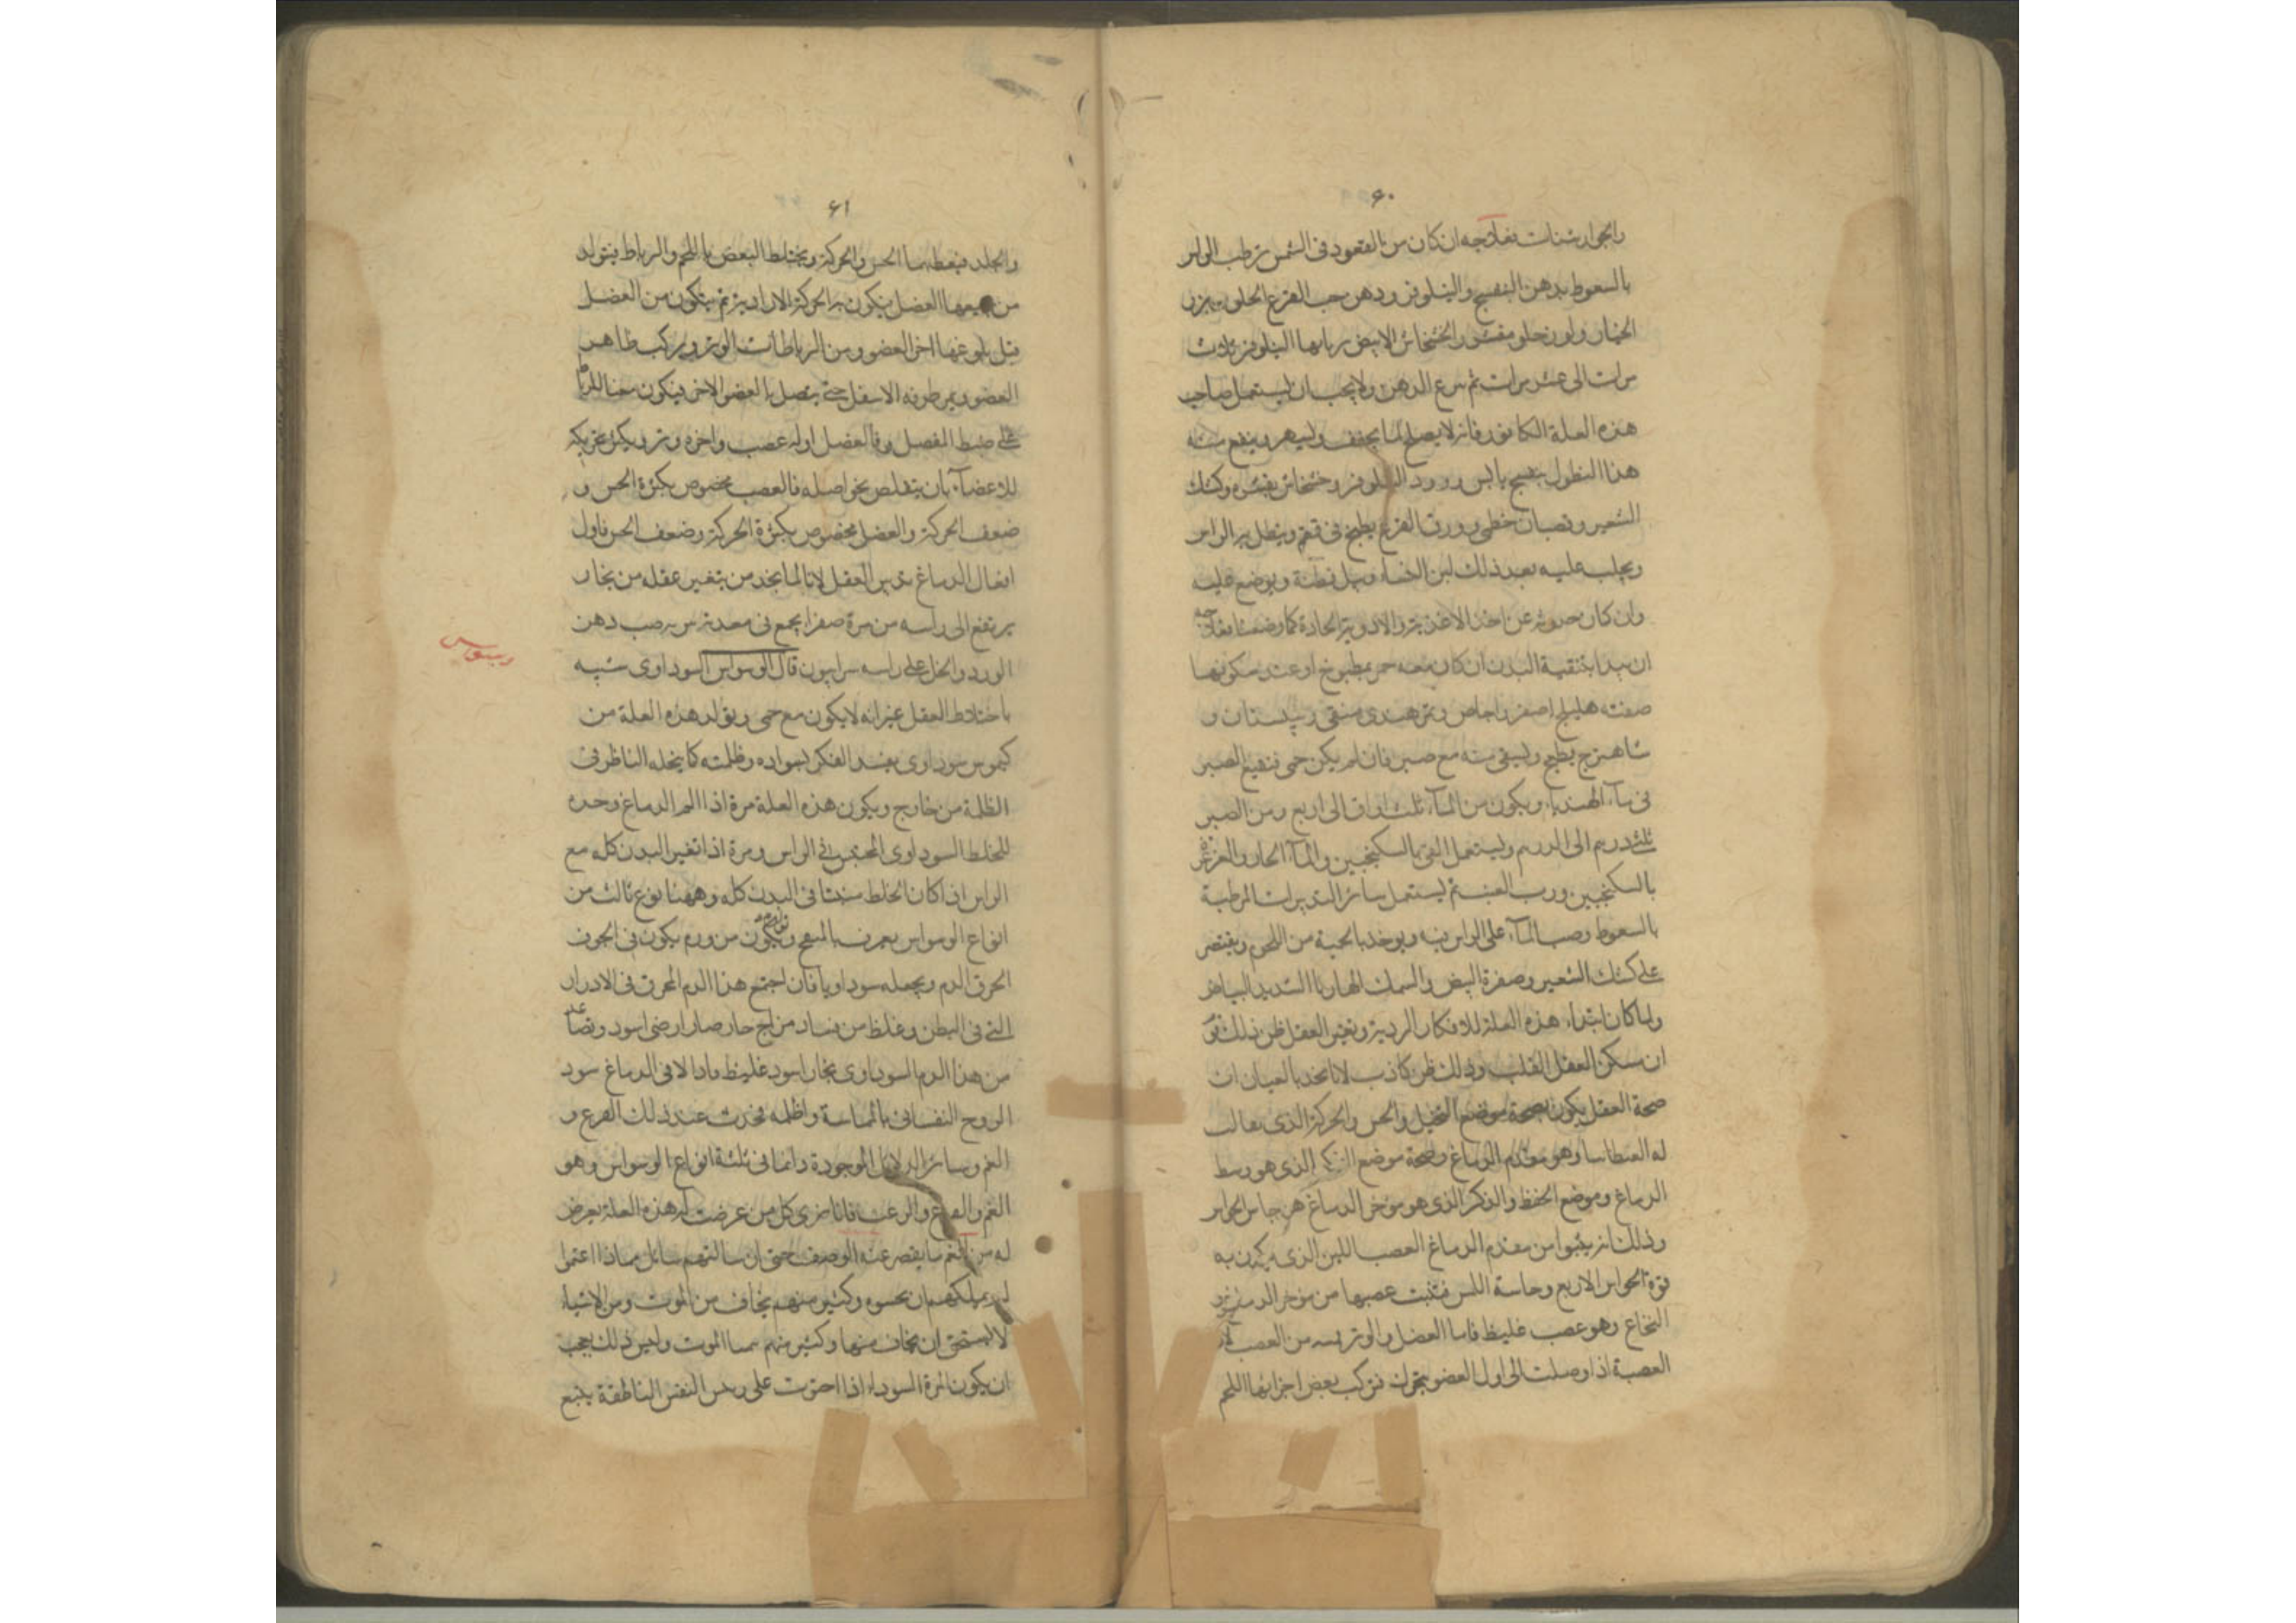 ۶۰
والجوارشنات فعلاجه ان كان من القعود فى الشمس ترطب الراس
بالسعوط بدهن البنفسج والنيلوفر ودهن حب القرع الحلو
الخيار ولوز حلو مقشر والخشخاش الابيض النيلوفر ثلاث
مرات الى عشر مرات ثم الدهن ولا يجب ان يستعمل صاحب
هذه العلة الكافور فانه لا يصلح لما يجفف ويسهر وينفع منه
هذا النطول بنفسج يابس وورد النيلوفر وخشخاش بقشره وكشك
الشعير وقصبان خطمى وورق القرع يطبخ فى قمقم وينطل به الراس
ويحلب عليه بعد ذلك لبن النساء ويبل قطنة ويوضع عليه
وان كان حدوثه عن اخذ الاغذية والادوية الحادة كما وصفنا فعلاجه
ان يبدا بتنقية البدن ان كان معه حمى بمطبوخ او عند سكونها
صفته هليلج اصفر واجاص وتمر هندى منقى وسپستان و
شاهترج يطبخ ويسقى منه مع صبر فان لم يكن حمى فنقيع الصبر
فى ماء الهندباء ويكون من الماء ثلث اواق الى اربع ومن الصبر
ثلثه درهم الى الدرهم ويستعمل القى بالسكنجبين والماء الحار والغرغرة
بالسكنجبين ورب العنب ثم يستعمل سائر التدبيرات المرطبة
بالسعوط وصب الماء على الراس ويوخذ بالحمية من اللحم ويقتصر
على كشك الشعير وصفرة البيض والسمك الهاربا الشديد البياض
ولما كان ابتداء هذه العلة للافكار الردية وتغير العقل ظن ذلك قوم
ان مسكن العقل القلب وذلك ظن كاذب لانا نجد بالعيان ان
صحة العقل يكون بصحة موضع التخيل والحس والحركة الذى يقال
له الفنطاسيا وهو مقدم الدماغ وصحة موضع الفكر الذى هو وسط
الدماغ وموضع الحفظ والذكر الذى هو موخر الدماغ
وذلك انه ينبوا من مقدم الدماغ العصب اللين الذى يكون به
قوة الحواس الاربع وحاسة اللمس فتنبت عصبها من موخر الدماغ
النخاع وهو عصب غليظ فاما العضل والوتر من العصب لان
العصبة اذا وصلت الى اول العضو فتركب بعض اجزائها اللحم
۶۱
والجلد فيعطيهما الحس والحركة ويختلط البعض باللحم والرباط فيتولد
من جميعها العضل يكون به الحركة الارادية ثم يتكون من العضل
قبل بلوغها اخر العضو ومن الرباطات الوتر ويركب ظاهر
العضو ويمر طرفه الاسفل حتى يتصل بالعضو الاخر فيكون معينا للرباط
على ضبط المفصل وفا العضل اوله عصب واخره وتر ويكثر تحريكه
للاعضاء بان يتقلص نحو اصله فالعصب مخصوص بكثرة الحس و
ضعف الحركة والعضل مخصوص بكثرة الحركة وضعف الحس فاول
افعال الدماغ تدبير العقل لانا لما نجد من يتغير عقله من بخار
يرتفع الى راسه من مرة صفرا يجمع فى معدته صب دهن
الورد والخل على راسه سرابيون قال الوسواس السوداوى شبيه
باختلاط العقل غير انه لا يكون مع حمى وتولد هذه العلة من
كيموس سوداوى يفسد الفكر لسواده وظلمته كما يتخيله الناظر فى
الظلمة من خارج ويكون هذه العلة مرة اذا الم الدماغ وحده
للخلط السوداوى المحتبس فى الراس ومرة اذا تغير البدن كله مع
الراس اذا كان الخلط منبثا فى البدن كله وههنا نوع ثالث من
انواع الوسواس يعرف بالنفخى ويكون من ورم يكون فى الجوف
احرق الدم ويجعله سوداويا فان اجتمع هذا الدم المحرق فى الادرار
التى فى البطن وغلظ من فساد مزاج حار صار ارضى اسود وتصاعد
من هذا الدم السوداوى بخار اسود غليظ الى الدماغ سود
الروح النفسانى بالمماسة واظلمه فحدث عند ذلك الفزع و
الغم وسائر الدلائل الموجودة دائما فى ثلثة انواع الوسواس وهو
الغم والفزع والرعب فانا نرى كل من عرضت له هذه العلة يعرض
له من الغم ما يقصر عنه الوصف حتى ان سالتهم سائل مماذا اغتموا
لم يمكنهم ان يحسوه وكثير منهم يخاف من الموت ومن الاشياء
لا يستحق ان يخاف منها وكثير منهم يتمنا الموت وليس ذلك بعجب
ان يكون المرة السوداء اذا احتوت على النفس الناطقة ينبع
وسواس